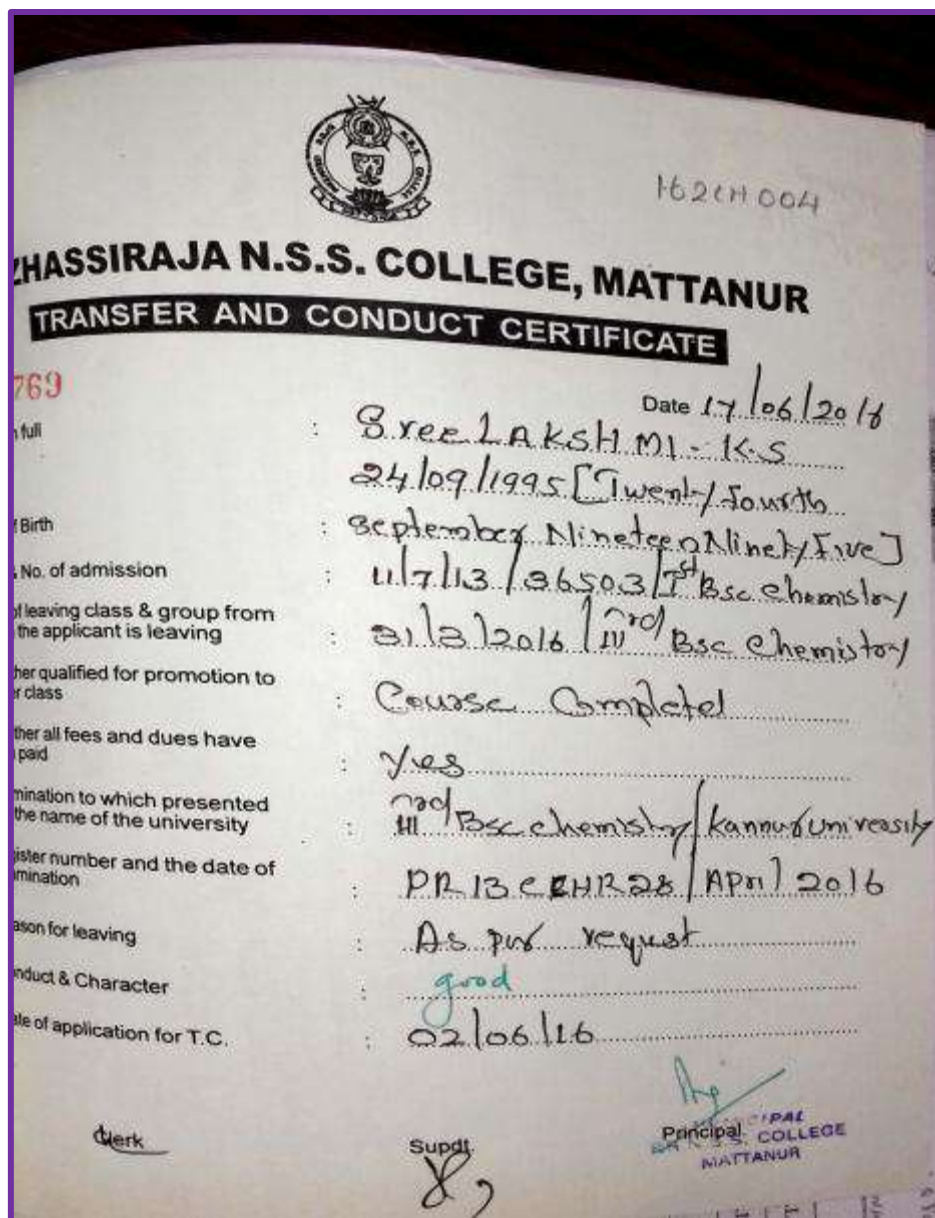 162CH004
ZHASSIRAJA N.S.S. COLLEGE, MATTANUR
TRANSFER AND CONDUCT CERTIFICATE
769
Date 17/06/2016
n full : Sree LAKSHMI - K.S
24/09/1995 [Twenty fourth
f Birth : September Nineteen Ninety Five]
No. of admission : 11/7/13 / 36503 / Ist Bsc Chemistry
of leaving class & group from
the applicant is leaving : 31/3/2016 / IIIrd Bsc Chemistry
her qualified for promotion to
r class : Course Completed
ther all fees and dues have
paid : Yes
mination to which presented
the name of the university : IIIrd Bsc chemistry / Kannur University
ister number and the date of
mination : PR13CCHR28 / April 2016
ason for leaving : As per request
nduct & Character : good
ate of application for T.C. : 02/06/16
Clerk
Supdt.
Principal
CIPAL
S. COLLEGE
MATTANUR